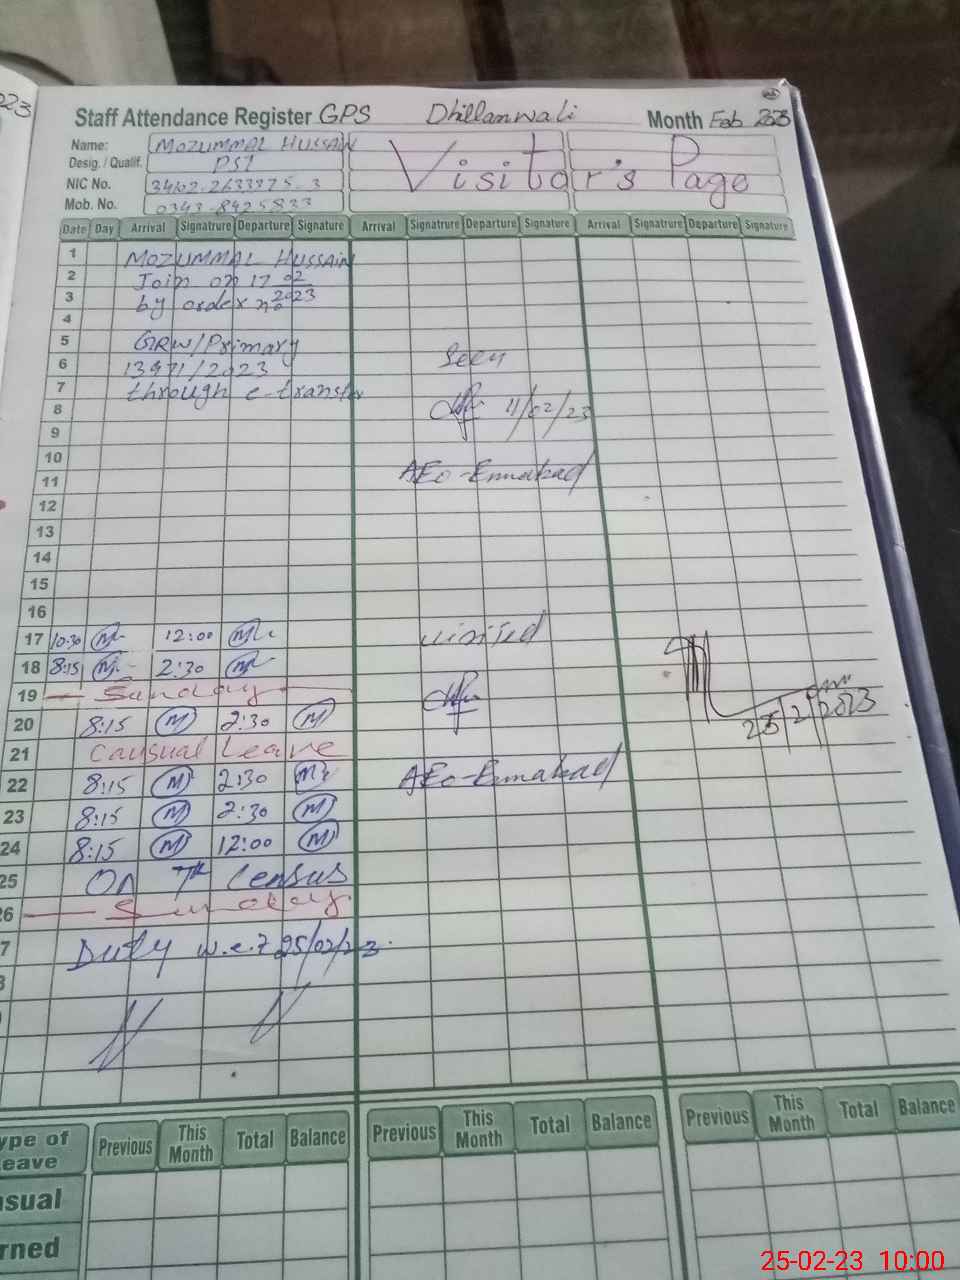 023
Staff Attendance Register GPS Dhillanwali Month Feb 2023
Name: MOZUMMAL HUSSAIN
Desig. / Qualif. PST
NIC No.
Mob. No. 0343-8425833
Visitor's Page
Date Day Arrival Signatrure Departure Signature Arrival Signatrure Departure Signature Arrival Signatrure Departure Signature
1 MOZUMMAL HUSSAIN
2 Join on 17 02
3 by order no 2023
4
5 GRW/Primary
6 13971/2023 Seen
7 through e-transfer
8 11/02/23
9
10
11 AEO-Emnabad
12
13
14
15
16
17 10:30 M 12:00 M visited
18 8:15 M 2:30 M
19 Sunday
20 8:15 M 2:30 M 25/2/2023
21 Causual Leave
22 8:15 M 2:30 M AEO-Emnabad
23 8:15 M 2:30 M
24 8:15 M 12:00 M
25 On 7th Census
26 Sunday
7 Duty w.e.f 25/02/23.
ype of eave Previous This Month Total Balance Previous This Month Total Balance Previous This Month Total Balance
sual
rned
25-02-23 10:00